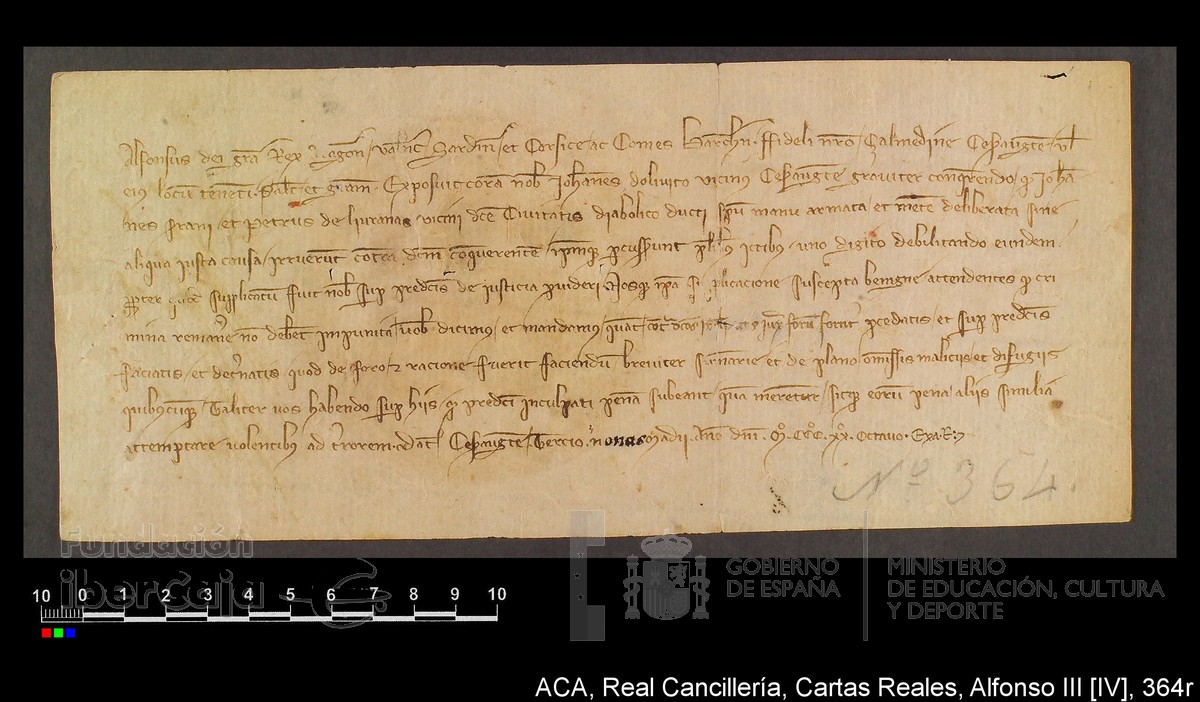 Alfonsus dei gra Rex Aragon / Valenc Sardin et Corsice ac Comes Barchn. Ffideli nro / Çalmedine Cesaraugte vl
eius locu tenenti. Salt et gram. Exposuit coram nob Iohanes dolivito vicinus Cesaraugte graviter conquerendo q Ioha
nes / et Petrus de vicini dce Civitatis diabolico ducti spu manu armata / et mente deliberata sine
aliqua iusta causa / irruerut contra dcm conquerente / ipmq pcusserunt plibus ictibus / uno digito debilitando eiusdem.
ppter supplicatu fuit nob sup predcis de iusticia provideri / Nosq supplicacione suscepta benigne attendentes q cri
mina remanere no debet impunita / vob dicimus / et mandamus / quat iux foru procedatis / et sup predcis
faciatis / et decnatis quod de foro et racione fuerit faciendu breviter sumarie et de plano omissis maliciis / et difugiis
quibuscuq / Taliter vos habendo sup hiis / q predci inculpati pena subeant qua meretur / sitq eoru pena aliis similia
attemptare volentibus ad trorem. Dat Cesaraugte / Tercio nonas Madii. Ano dni. Mo. CCCo. XXo. Octavo. Exa. R.
No 364.
Fundación
iberCaja
GOBIERNO
DE ESPAÑA
MINISTERIO
DE EDUCACIÓN, CULTURA
Y DEPORTE
10 0 1 2 3 4 5 6 7 8 9 10
ACA, Real Cancillería, Cartas Reales, Alfonso III [IV], 364r